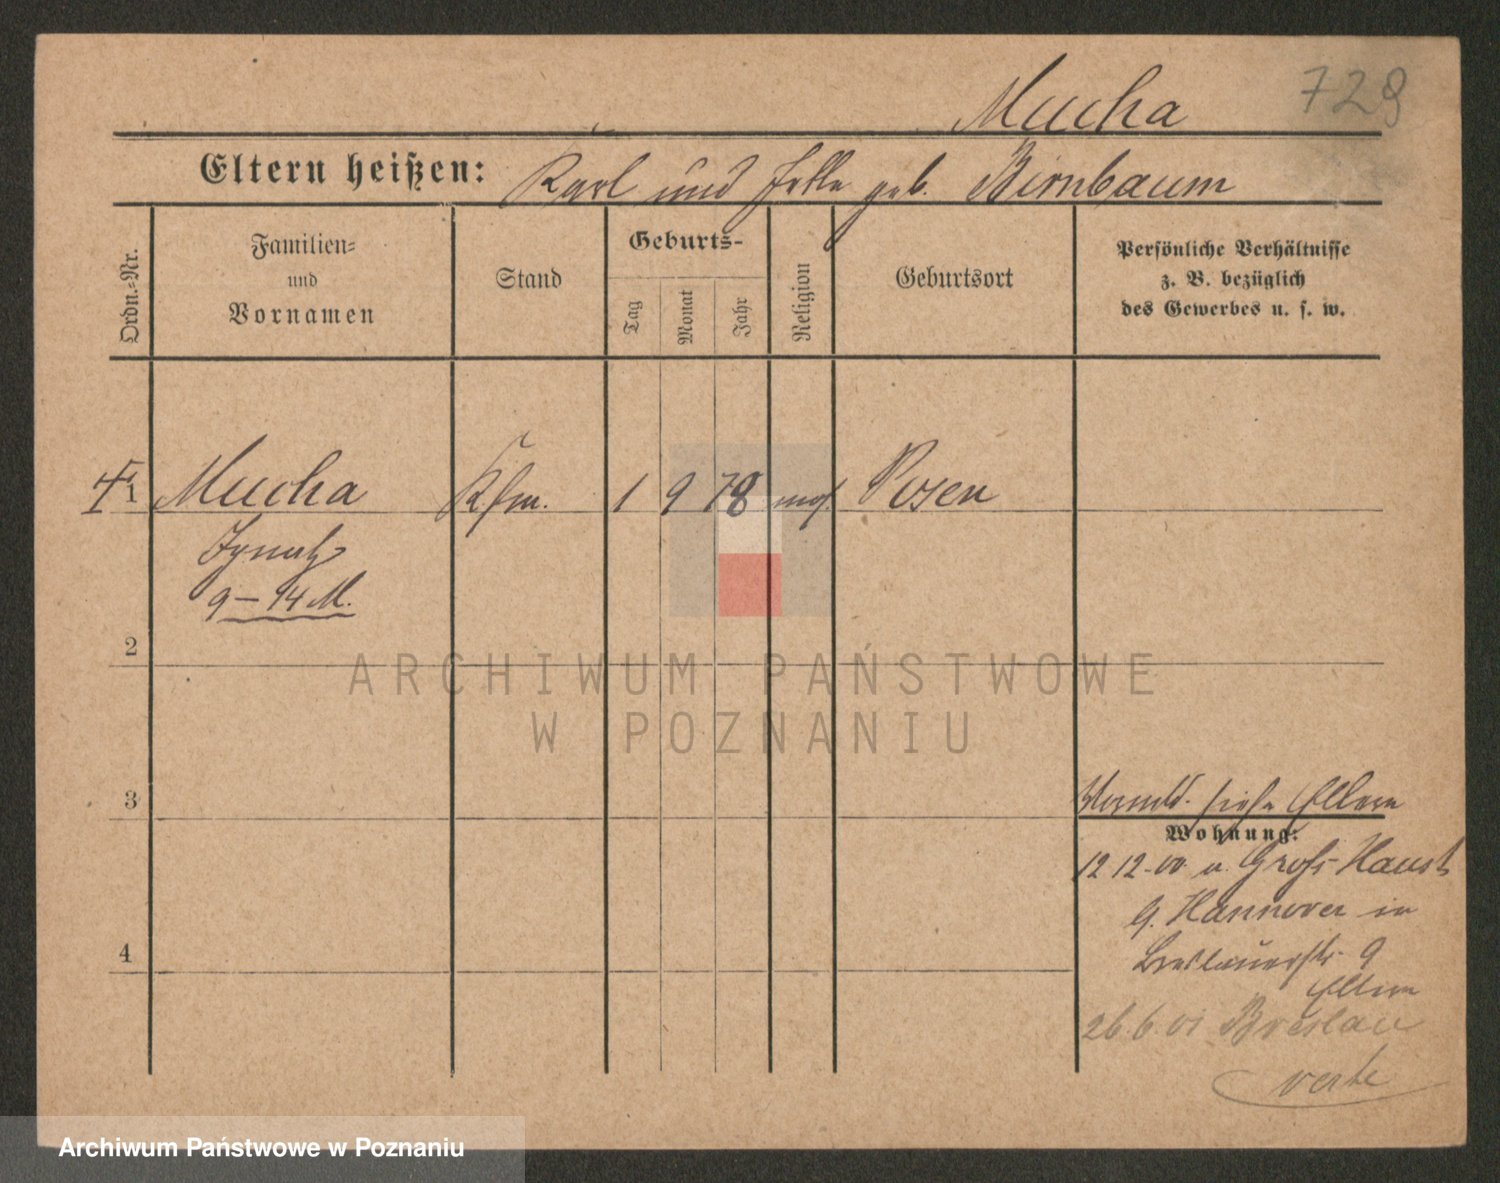 Mucha
729
Eltern heißen: Karl und Jette geb. Birnbaum
Ordn.-Nr.
Familien-
und
Vornamen
Stand
Geburts-
Tag
Monat
Jahr
Religion
Geburtsort
Persönliche Verhältnisse
z. B. bezüglich
des Gewerbes u. s. w.
1 Mucha Kfm. 1 9 78 mos. Posen
Ignatz
9 – 14 M.
2
3
4
siehe Eltern
Wohnung:
12 12.00 v. Groß
Hannover in
Breslauerstr. 9
Eltern
26.6.01 Breslau
verte
ARCHIWUM PAŃSTWOWE
W POZNANIU
Archiwum Państwowe w Poznaniu